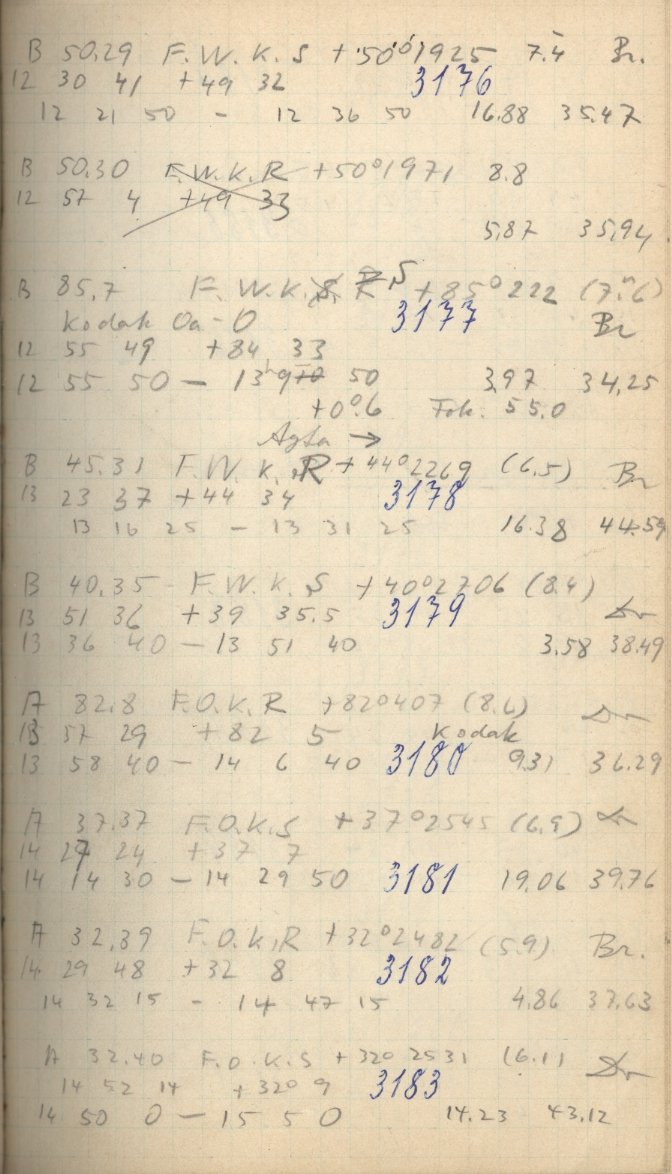 B 50.29 F.W.K.S +50°1925 7.4 Br.
12 30 41 +49 32 3176
12 21 50 - 12 36 50 16.88 35.47
B 50.30 F.W.K.R +50°1971 8.8
12 57 4 +49 33
5.87 35.94
B 85.7 F.W.K.S R S +85°222 (7.6)
Kodak Oa-O 3177 Br
12 55 49 +84 33
12 55 50 - 13 9 10 50 3.97 34.25
+0°.6 Fok. 55.0
Agfa →
B 45.31 F.W.K.R +44°2269 (6.5) Br
13 23 37 +44 34 3178
13 16 25 - 13 31 25 16.38 44.59
B 40.35 F.W.K.S +40°2706 (8.4)
13 51 36 +39 35.5 3179
13 36 40 - 13 51 40 3.58 38.49
A 82.8 F.O.K.R +82°407 (8.6)
13 57 29 +82 5 Kodak
13 58 40 - 14 6 40 3180 9.31 36.29
A 37.37 F.O.K.S +37°2545 (6.9)
14 27 24 +37 7
14 14 30 - 14 29 50 3181 19.06 39.76
A 32.39 F.O.K.R +32°2482 (5.9) Br.
14 29 48 +32 8 3182
14 32 15 - 14 47 15 4.86 37.63
A 32.40 F.O.K.S +32° 2531 (6.1)
14 52 14 +32° 9 3183
14 50 0 - 15 5 0 14.23 43.12